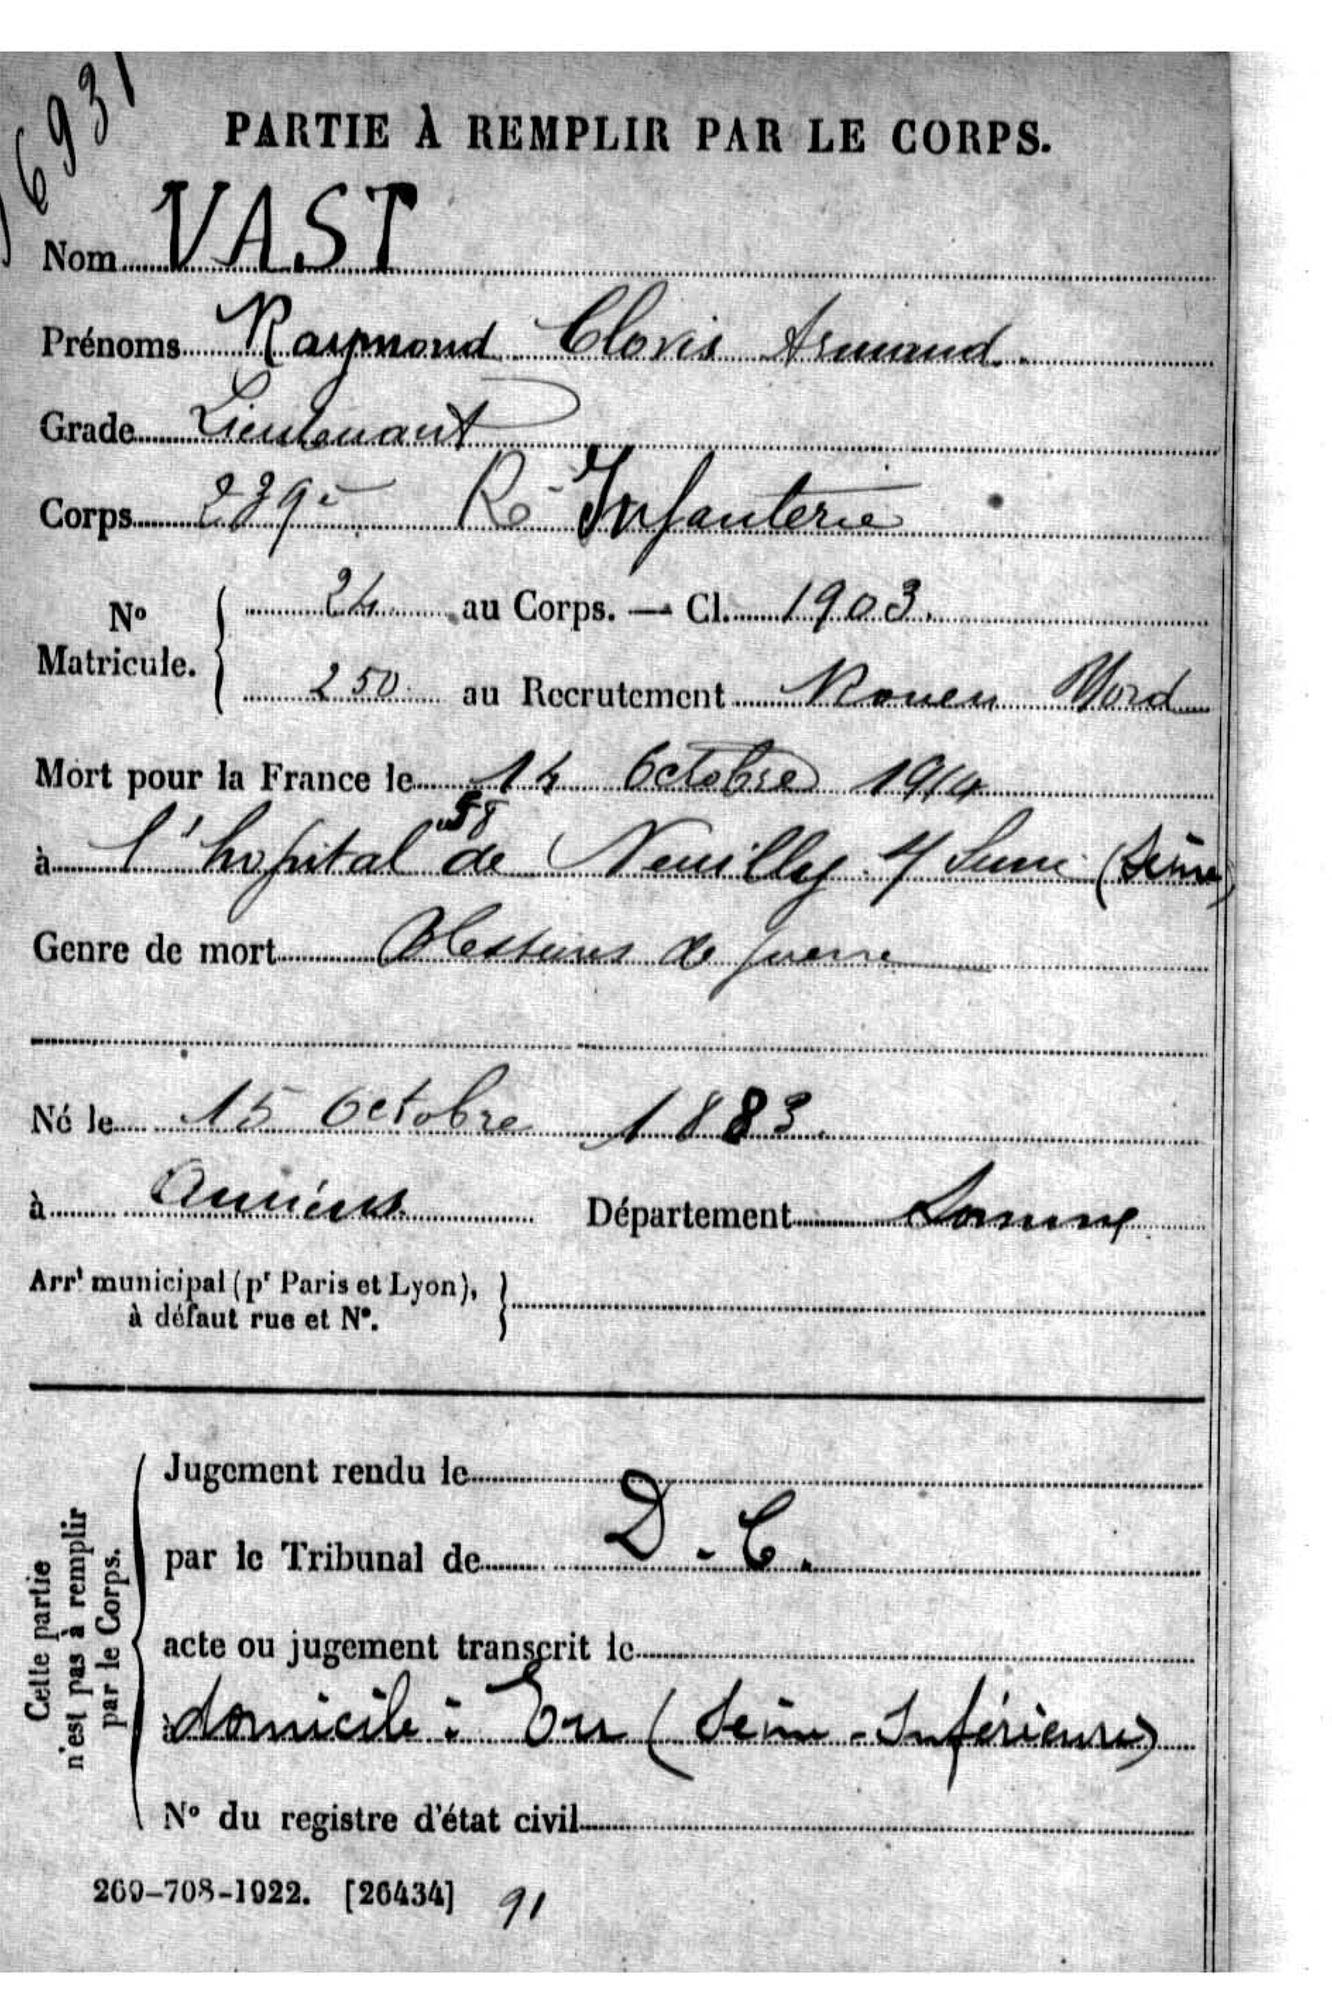 6931
PARTIE À REMPLIR PAR LE CORPS.
Nom VAST
Prénoms Raymond Clovis Armand.
Grade Lieutenant
Corps 239e R. Infanterie
No Matricule. { 24 au Corps. — Cl. 1903.
250 au Recrutement Rouen Nord
Mort pour la France le 14 Octobre 1914
à l'hopital de Neuilly s/ Seine (Seine)
Genre de mort Blessures de guerre
Né le 15 Octobre 1883.
à Amiens. Département Somme
Arrt municipal (pr Paris et Lyon), }
à défaut rue et N°.
Cette partie
n'est pas à remplir
par le Corps.
Jugement rendu le
par le Tribunal de D. C.
acte ou jugement transcrit le
à domicile : Eu (Seine-Inférieure)
N° du registre d'état civil
269-708-1922. [26434] 91